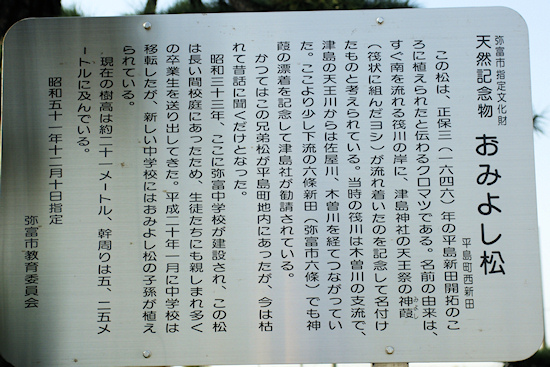 弥富市指定文化財
天然記念物 おみよし松
平島町西新田
この松は、正保三（一六四六）年の平島新田開拓のこ
ろに植えられたと伝わるクロマツである。名前の由来は、
すぐ南を流れる筏川の岸に、津島神社の天王祭の神葭
みよし
（筏状に組んだヨシ）が流れ着いたのを記念して名付け
たものと考えられている。当時の筏川は木曽川の支流で、
津島の天王川からは佐屋川、木曽川を経てつながってい
た。ここより少し下流の六條新田（弥富市六條）でも神
葭の漂着を記念して津島社が勧請されている。
かつてはこの兄弟松が平島町地内にあったが、今は枯
れて昔話に聞くだけとなった。
昭和三十三年、ここに弥富中学校が建設され、この松
は長い間校庭にあったため、生徒たちにも親しまれ多く
の卒業生を送り出してきた。平成二十年一月に中学校は
移転したが、新しい中学校にはおみよし松の子孫が植え
られている。
現在の樹高は約二十一メートル、幹周りは五、二五メ
ートルに及んでいる。
昭和五十一年十二月十日指定
弥富市教育委員会